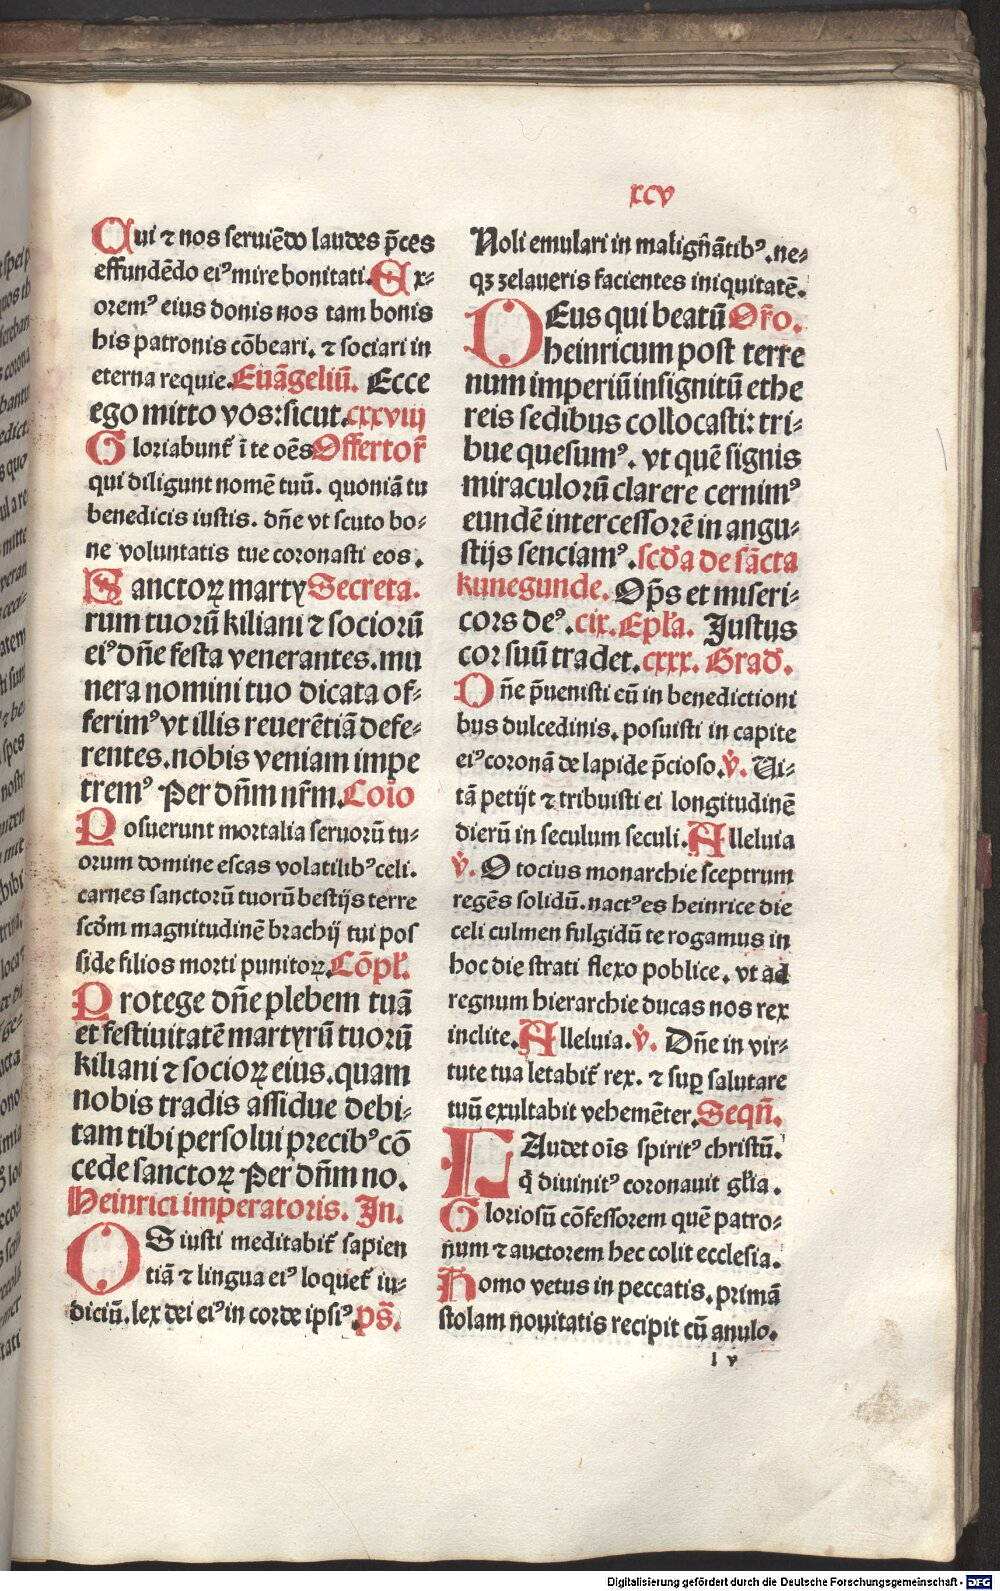 xcv
Cui ⁊ nos seruiēdo laudes p̄ces
effundēdo eiꝰ mire bonitati. Ex-
oremꝰ eius donis nos tam bonis
his patronis cōbeari. ⁊ sociari in
eterna requie. Euāgeliū. Ecce
ego mitto vos: sicut. cxxviij
Gloriabunt̄ ī te oēs Offertor̄
qui diligunt nomē tuū. quoniā tu
benedicis iustis. dn̄e vt scuto bo-
ne voluntatis tue coronasti eos.
Sanctoꝝ marty Secreta.
rum tuorū kiliani ⁊ sociorū
eiꝰ dn̄e festa venerantes. mu
nera nomini tuo dicata of-
ferimꝰ vt illis reuerētiā defe-
rentes. nobis veniam impe
tremꝰ Per dn̄m nr̄m. Coīo
Posuerunt mortalia seruorū tu-
orum domine escas volatilibꝰ celi.
carnes sanctorū tuorū bestijs terre
scd̄m magnitudinē brachij tui pos
side filios morti punitoꝝ. Cōpl̄.
Protege dn̄e plebem tuā
et festiuitatē martyrū tuorū
kiliani ⁊ socioꝝ eius. quam
nobis tradis assidue debi-
tam tibi persolui precibꝰ cō
cede sanctoꝝ Per dn̄m no.
Heinrici imperatoris. In.
OS iusti meditabit̄ sapien
tiā ⁊ lingua eiꝰ loquet̄ iu-
diciū. lex dei eiꝰ in corde ipsiꝰ. ps̄.
Noli emulari in malign̄ātibꝰ. ne-
qꝫ zelaueris facientes iniquitatē.
DEus qui beatū Or̄o.
heinricum post terre
num imperiū insignitū ethe
reis sedibus collocasti: tri-
bue quesumꝰ. vt quē signis
miraculorū clarere cernimꝰ
eundē intercessorē in angu-
stijs senciamꝰ. scd̄a de sācta
kunegunde. Op̄s et miseri-
cors deꝰ. cix. Epl̄a. Justus
cor suū tradet. cxxx. Grad̄.
Dn̄e p̄uenisti eū in benedictioni
bus dulcedinis. posuisti in capite
eiꝰ coronā de lapide p̄cioso. v̄. Ui-
tā petijt ⁊ tribuisti ei longitudinē
dierū in seculum seculi. Alleluia
v̄. O tocius monarchie sceptrum
regēs solidū. nactꝰ es heinrice die
celi culmen fulgidū te rogamus in
hoc die strati flexo poblice. vt ad
regnum hierarchie ducas nos rex
inclite. Alleluia. v̄. Dn̄e in vir-
tute tua letabit̄ rex. ⁊ suꝑ salutare
tuū exultabit vehemēter. Seqn̄.
LAudet oīs spiritꝰ christū.
q̄ diuinitꝰ coronauit gl̄ia.
Gloriosū cōfessorem quē patro-
num ⁊ auctorem hec colit ecclesia.
Homo vetus in peccatis. primā
stolam nouitatis recipit cū anulo.
l v
Digitalisierung gefördert durch die Deutsche Forschungsgemeinschaft - DFG